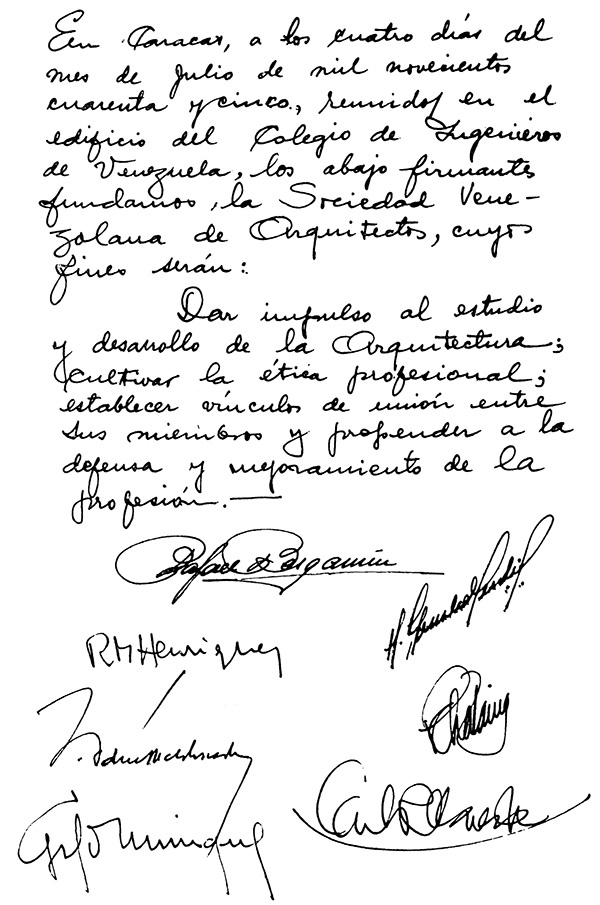 En Caracas, a los cuatro días del
mes de Julio de mil novecientos
cuarenta y cinco, reunidos en el
edificio del Colegio de Ingenieros
de Venezuela, los abajo firmantes
fundamos, la Sociedad Vene-
zolana de Arquitectos, cuyos
fines serán:
Dar impulso al estudio
y desarrollo de la Arquitectura;
cultivar la ética profesional;
establecer vínculos de unión entre
sus miembros y propender a la
defensa y mejoramiento de la
profesión.—
Rafael Bergamín
R M Henriquez